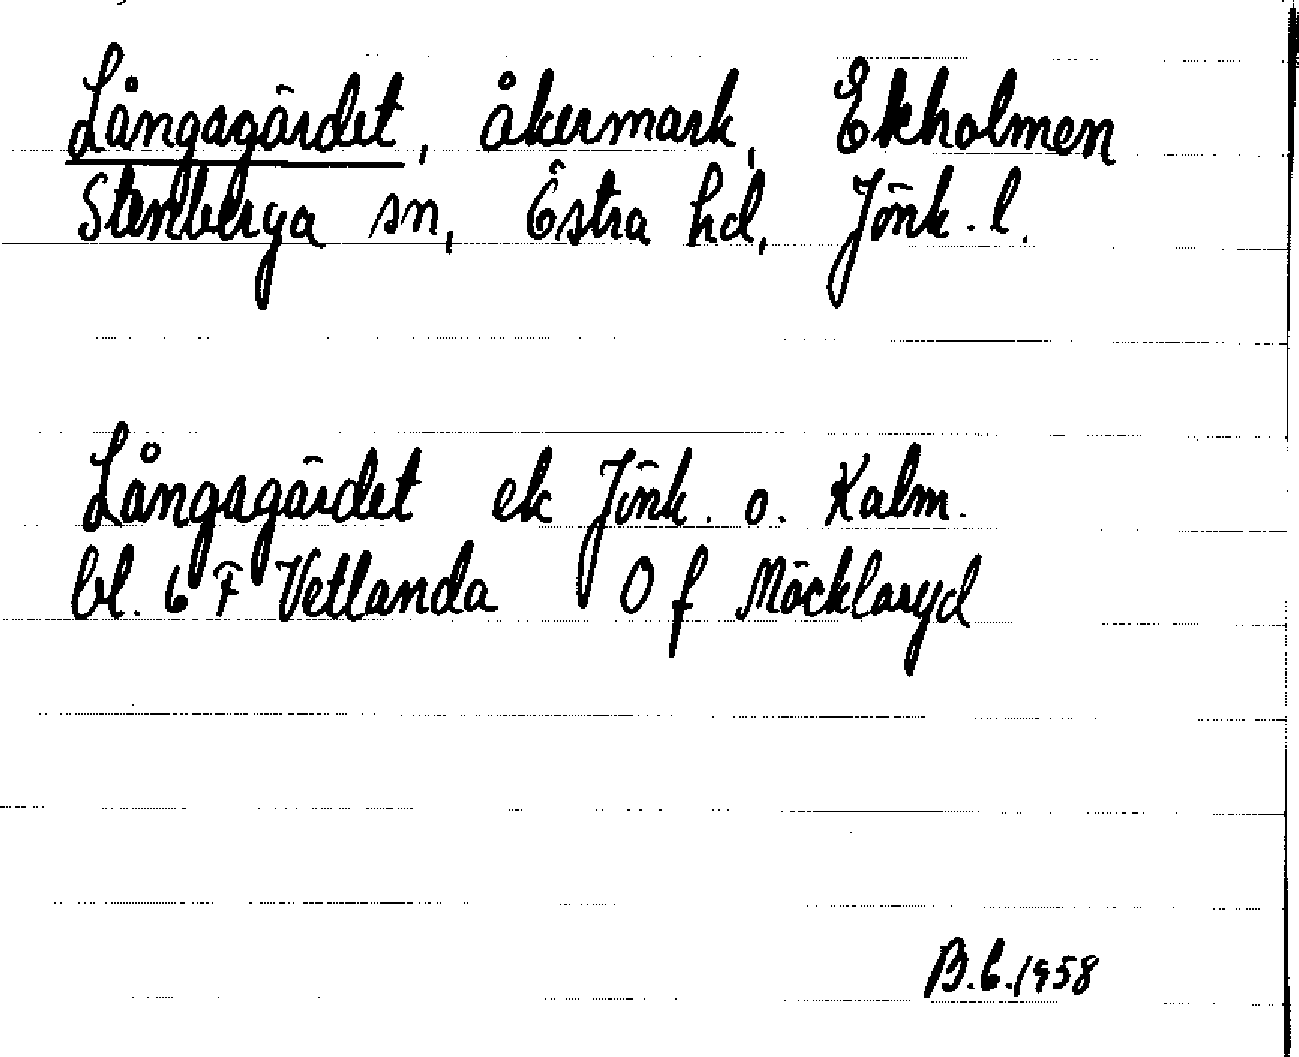 Långagärdet, åkermark, Ekholmen
Stenberga sn, Östra hd, Jönk. l.
Långagärdet ek Jönk. o. Kalm.
bl. 6 F Vetlanda 0 f Möcklaryd
B.G.1958